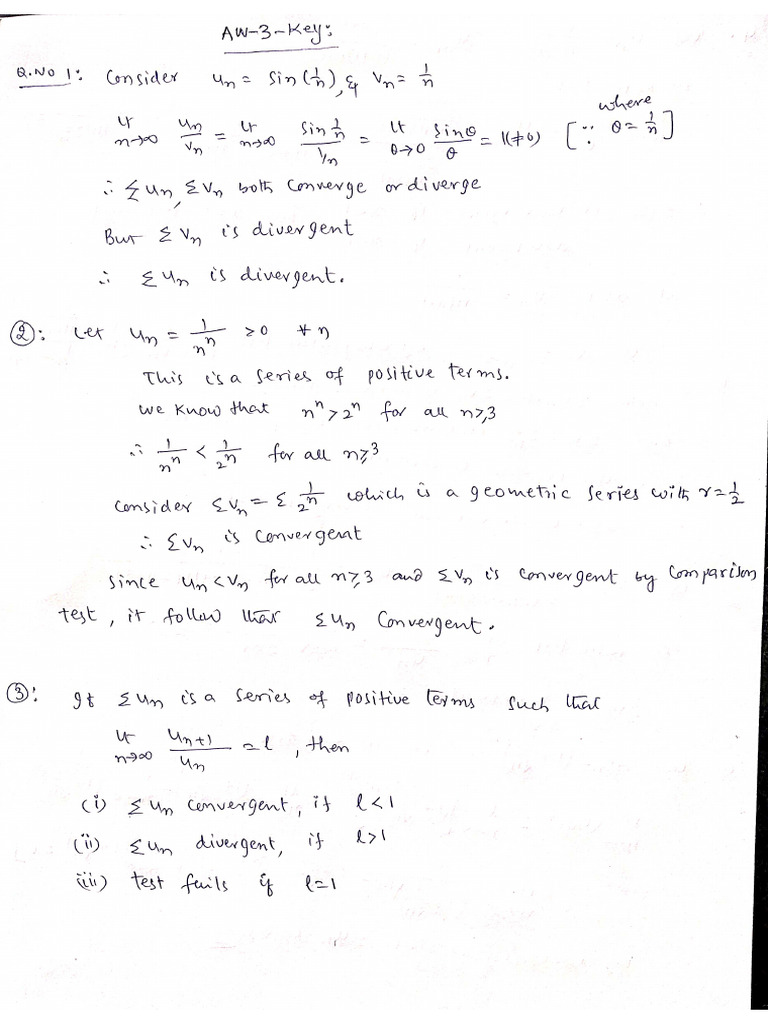 AW-3-Key:
Q.No 1: Consider uₙ = sin(1/n), & vₙ = 1/n
Lt n→∞ uₙ/vₙ = Lt n→∞ sin 1/n / 1/n = Lt θ→0 sinθ/θ = 1(≠0) [∵ where θ = 1/n]
∴ Σuₙ, Σvₙ both converge or diverge
But Σvₙ is divergent
∴ Σuₙ is divergent.
②: Let uₙ = 1/nⁿ > 0 ∀ n
This is a series of positive terms.
we know that nⁿ > 2ⁿ for all n≥3
∴ 1/nⁿ < 1/2ⁿ for all n≥3
Consider Σvₙ = Σ 1/2ⁿ which is a geometric series with r = 1/2
∴ Σvₙ is convergent
Since uₙ < vₙ for all n≥3 and Σvₙ is convergent by comparison
test, it follow that Σuₙ convergent.
③: If Σuₙ is a series of positive terms such that
Lt n→∞ uₙ₊₁/uₙ = l, then
(i) Σuₙ convergent, if l<1
(ii) Σuₙ divergent, if l>1
(iii) test fails if l=1